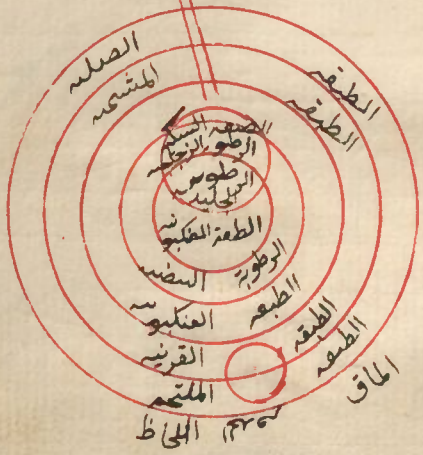 الطبقه الصلبه
الطبقه المشيميه
الطبقه الشبكيه
الرطوبه الزجاجيه
الرطوبه
الجليديه
الطبقه العنكبوتيه
الرطوبه البيضيه
الطبقه العنكبوتيه
الطبقه القرنيه
الطبقه الملتحمه
الماق
اللحاظ